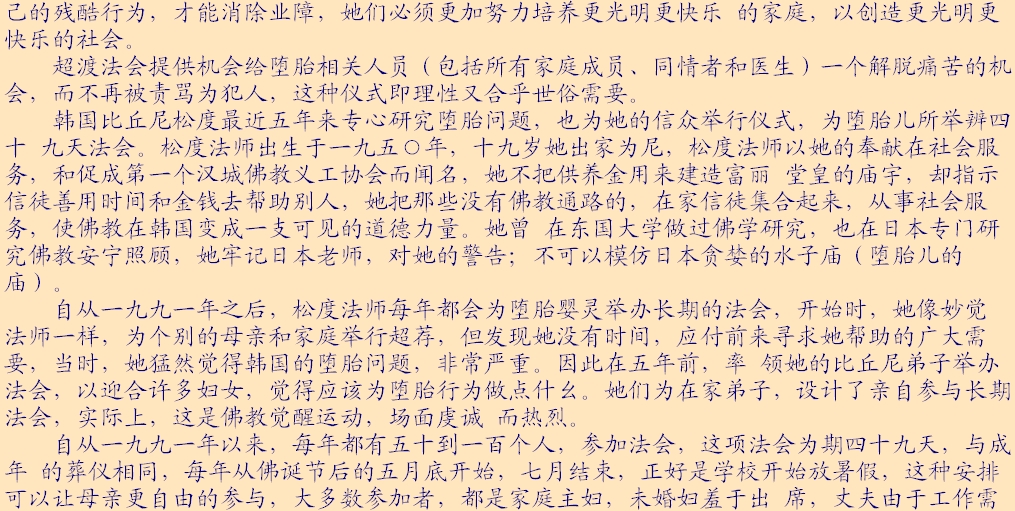 己的残酷行为，才能消除业障，她们必须更加努力培养更光明更快乐 的家庭，以创造更光明更
快乐的社会。
超渡法会提供机会给堕胎相关人员（包括所有家庭成员、同情者和医生）一个解脱痛苦的机
会，而不再被责骂为犯人，这种仪式即理性又合乎世俗需要。
韩国比丘尼松度最近五年来专心研究堕胎问题，也为她的信众举行仪式，为堕胎儿所举辨四
十 九天法会。松度法师出生于一九五〇年，十九岁她出家为尼，松度法师以她的奉献在社会服
务，和促成第一个汉城佛教义工协会而闻名，她不把供养金用来建造富丽 堂皇的庙宇，却指示
信徒善用时间和金钱去帮助别人，她把那些没有佛教通路的，在家信徒集合起来，从事社会服
务，使佛教在韩国变成一支可见的道德力量。她曾 在东国大学做过佛学研究，也在日本专门研
究佛教安宁照顾，她牢记日本老师，对她的警告；不可以模仿日本贪婪的水子庙（堕胎儿的
庙）。
自从一九九一年之后，松度法师每年都会为堕胎婴灵举办长期的法会，开始时，她像妙觉
法师一样，为个别的母亲和家庭举行超荐，但发现她没有时间，应付前来寻求她帮助的广大需
要，当时，她猛然觉得韩国的堕胎问题，非常严重。因此在五年前，率 领她的比丘尼弟子举办
法会，以迎合许多妇女，觉得应该为堕胎行为做点什么。她们为在家弟子，设计了亲自参与长期
法会，实际上，这是佛教觉醒运动，场面虔诚 而热烈。
自从一九九一年以来，每年都有五十到一百个人，参加法会，这项法会为期四十九天，与成
年 的葬仪相同，每年从佛诞节后的五月底开始，七月结束，正好是学校开始放暑假，这种安排
可以让母亲更自由的参与，大多数参加者，都是家庭主妇，未婚妇羞于出 席，丈夫由于工作需